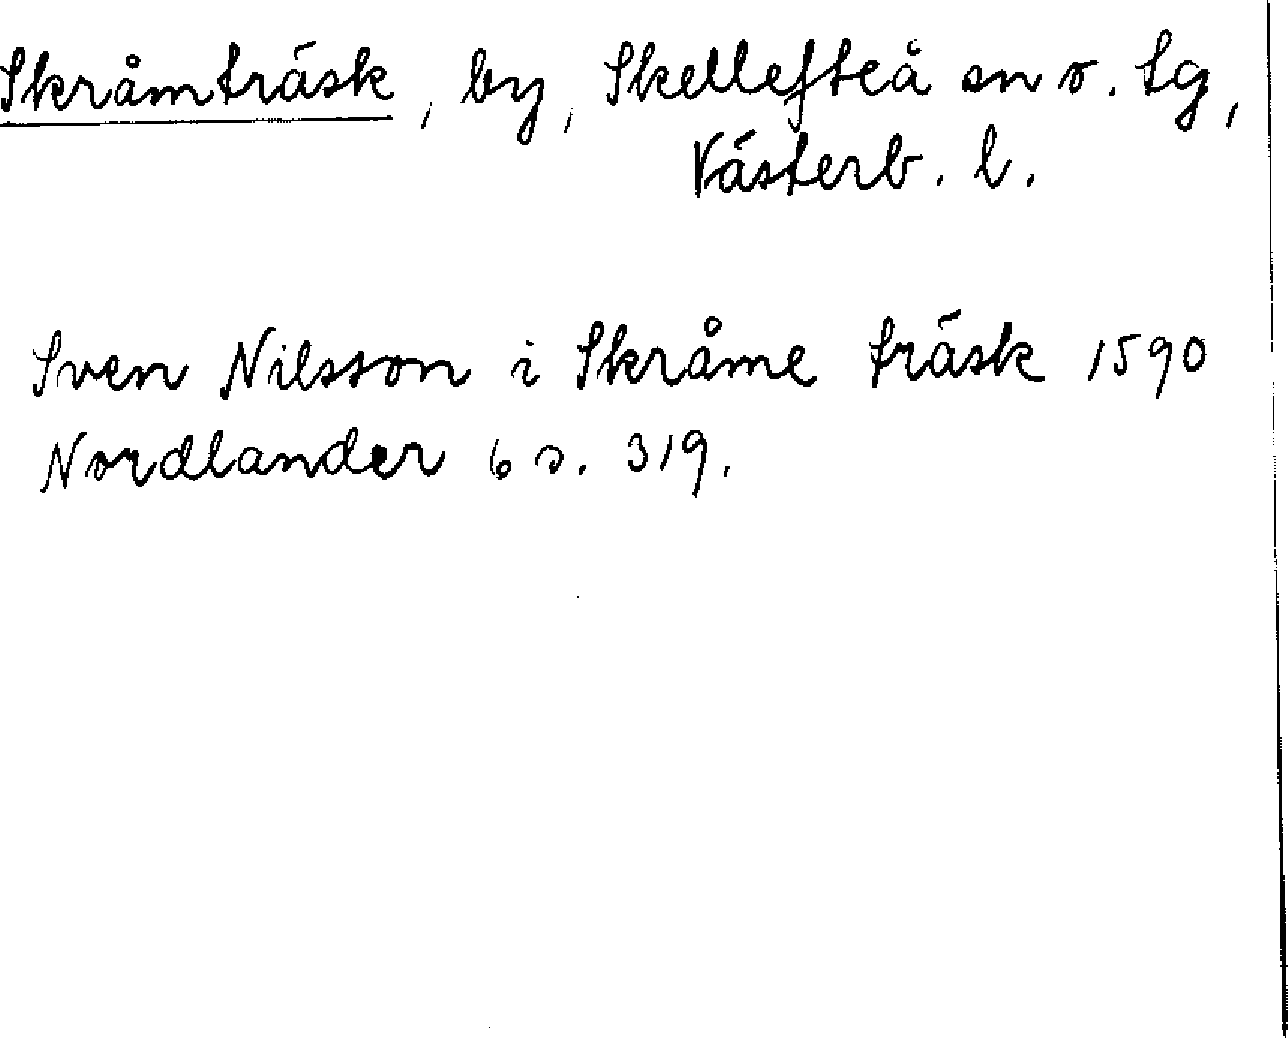 Skråmträsk, by, Skellefteå sn o. tg,
Västerb. l.
Sven Nilsson i Skråme träsk 1590
Nordlander 6 s. 319.